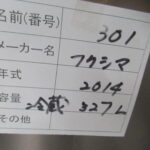 名前(番号) 301
メーカー名 フクシマ
年式 2014
容量 冷蔵 327L
その他